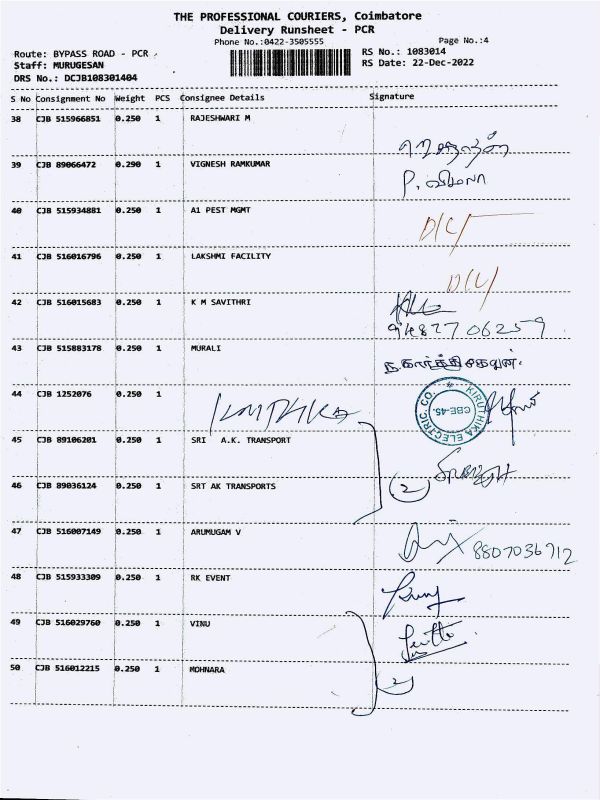 THE PROFESSIONAL COURIERS, Coimbatore
Delivery Runsheet - PCR
Phone No.:0422-3505555 Page No.:4
Route: BYPASS ROAD - PCR RS No.: 1083014
Staff: MURUGESAN RS Date: 22-Dec-2022
DRS No.: DCJB108301404
S No Consignment No Weight PCS Consignee Details Signature
38 CJB 515966851 0.250 1 RAJESHWARI M
39 CJB 89066472 0.290 1 VIGNESH RAMKUMAR
P. விமலா
40 CJB 515934881 0.250 1 A1 PEST MGMT
D/L/
41 CJB 516016796 0.250 1 LAKSHMI FACILITY
D/L/
42 CJB 516015683 0.250 1 K M SAVITHRI
9487706259
43 CJB 515883178 0.250 1 MURALI
44 CJB 1252076 0.250 1
KIRUTHIKA ELECTRIC. CO.
CBE-45.
45 CJB 89106201 0.250 1 SRI A.K. TRANSPORT
46 CJB 89036124 0.250 1 SRT AK TRANSPORTS
2
47 CJB 516007149 0.250 1 ARUMUGAM V
8807036912
48 CJB 515933309 0.250 1 RK EVENT
49 CJB 516029760 0.250 1 VINU
50 CJB 516012215 0.250 1 MOHNARA
2